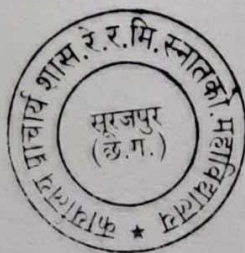 कार्यालय प्राचार्य शास.रे.र.मि.स्नातको.महाविद्यालय ★
सूरजपुर
(छ.ग.)